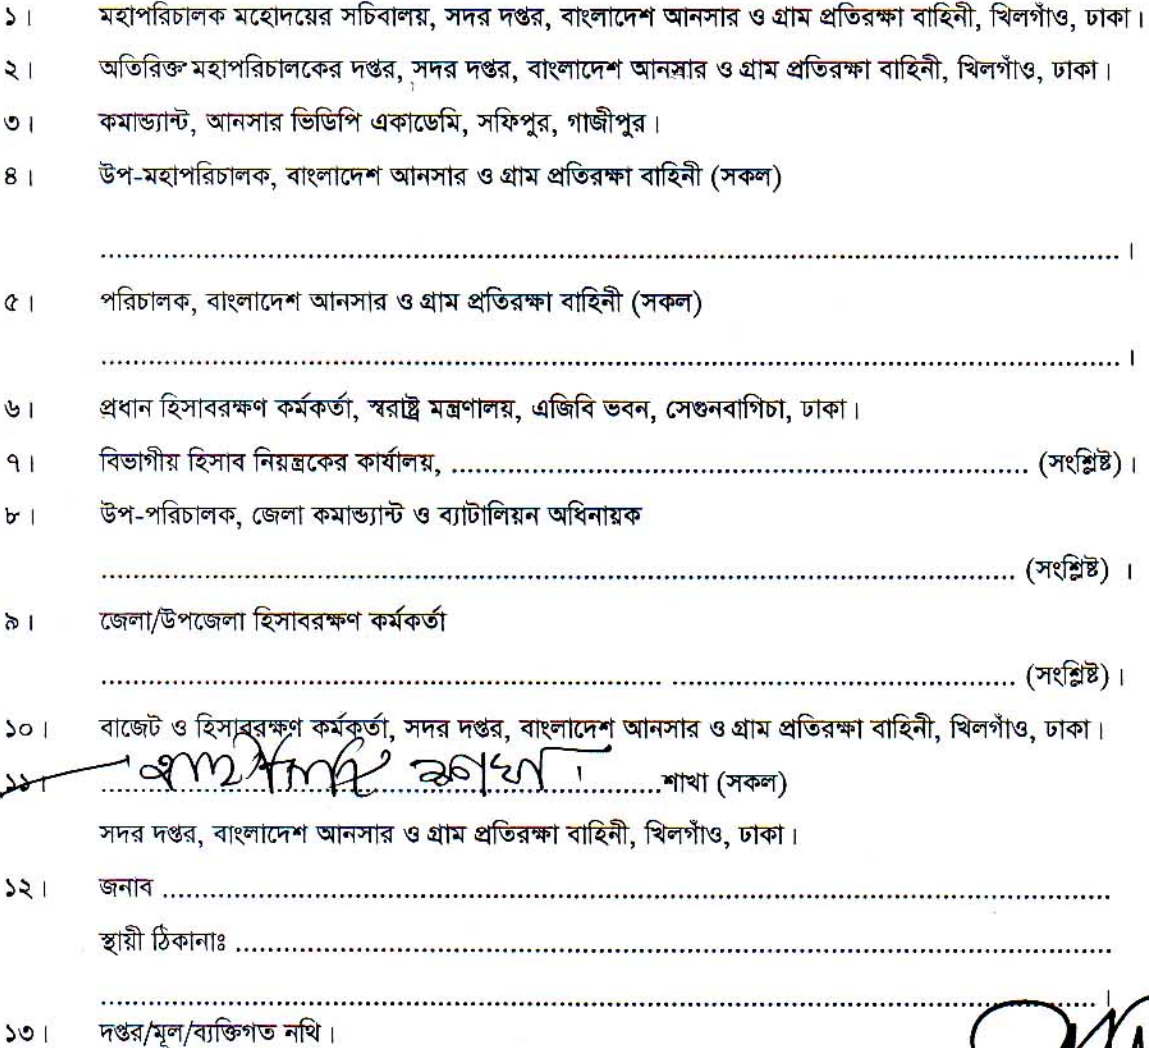 ১। মহাপরিচালক মহোদয়ের সচিবালয়, সদর দপ্তর, বাংলাদেশ আনসার ও গ্রাম প্রতিরক্ষা বাহিনী, খিলগাঁও, ঢাকা।
২। অতিরিক্ত মহাপরিচালকের দপ্তর, সদর দপ্তর, বাংলাদেশ আনসার ও গ্রাম প্রতিরক্ষা বাহিনী, খিলগাঁও, ঢাকা।
৩। কমান্ড্যান্ট, আনসার ভিডিপি একাডেমি, সফিপুর, গাজীপুর।
৪। উপ-মহাপরিচালক, বাংলাদেশ আনসার ও গ্রাম প্রতিরক্ষা বাহিনী (সকল)
.......................................................................................................................... ।
৫। পরিচালক, বাংলাদেশ আনসার ও গ্রাম প্রতিরক্ষা বাহিনী (সকল)
.......................................................................................................................... ।
৬। প্রধান হিসাবরক্ষণ কর্মকর্তা, স্বরাষ্ট্র মন্ত্রণালয়, এজিবি ভবন, সেগুনবাগিচা, ঢাকা।
৭। বিভাগীয় হিসাব নিয়ন্ত্রকের কার্যালয়, ..................................................................... (সংশ্লিষ্ট)।
৮। উপ-পরিচালক, জেলা কমান্ড্যান্ট ও ব্যাটালিয়ন অধিনায়ক
............................................................................................................. (সংশ্লিষ্ট) ।
৯। জেলা/উপজেলা হিসাবরক্ষণ কর্মকর্তা
................................................................... ......................................... (সংশ্লিষ্ট)।
১০। বাজেট ও হিসাবরক্ষণ কর্মকর্তা, সদর দপ্তর, বাংলাদেশ আনসার ও গ্রাম প্রতিরক্ষা বাহিনী, খিলগাঁও, ঢাকা।
১১। ...................................................................শাখা (সকল)
সদর দপ্তর, বাংলাদেশ আনসার ও গ্রাম প্রতিরক্ষা বাহিনী, খিলগাঁও, ঢাকা।
১২। জনাব .................................................................................................................
স্থায়ী ঠিকানাঃ ........................................................................................................
....................................................................................................................... ।
১৩। দপ্তর/মূল/ব্যক্তিগত নথি।